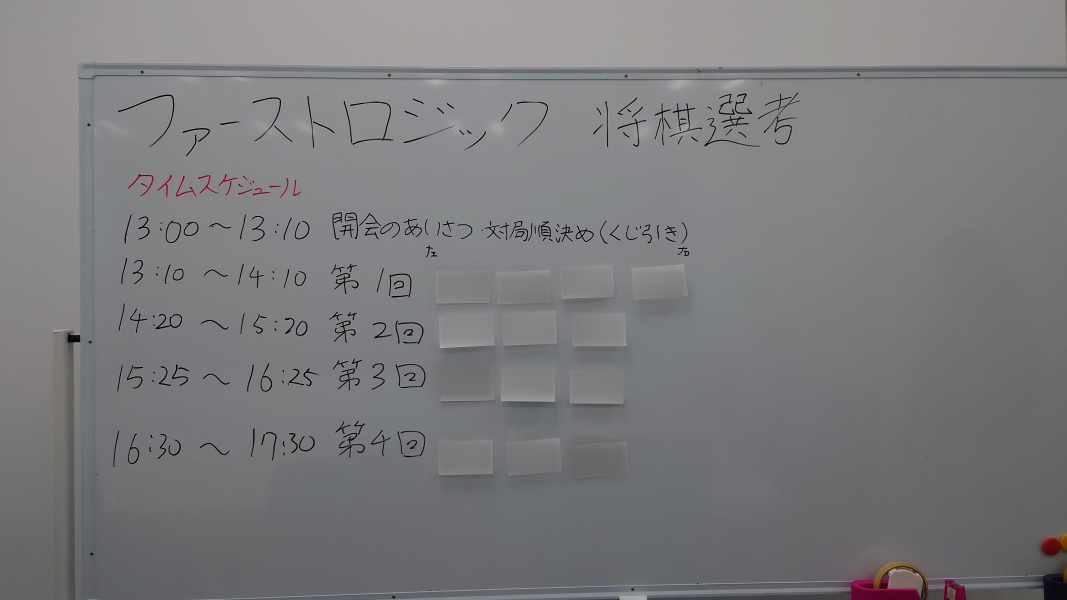 ファーストロジック 将棋選考
タイムスケジュール
13:00～13:10 開会のあいさつ・対局順決め(くじ引き)
左 右
13:10～14:10 第1回
14:20～15:20 第2回
15:25～16:25 第3回
16:30～17:30 第4回